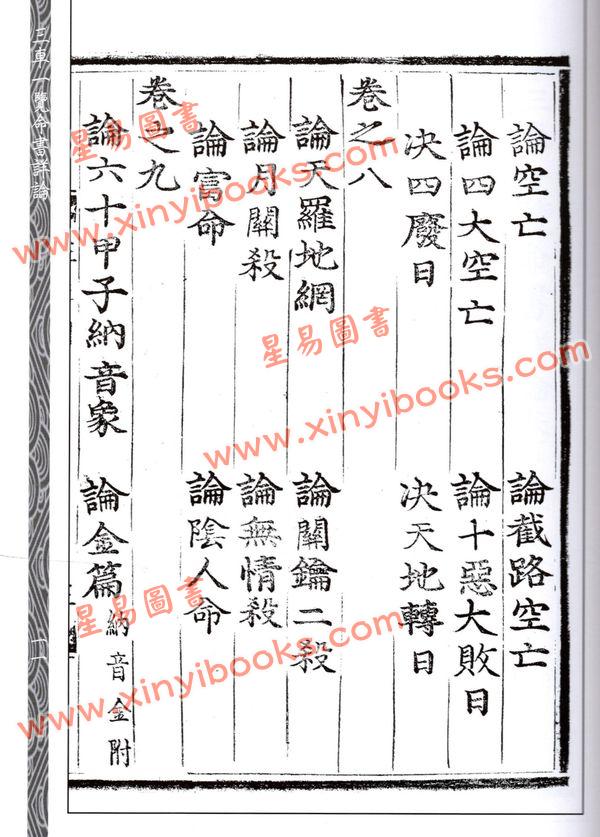 論空亡 論截路空亡
論四大空亡 論十惡大敗日
决四廢日 决天地轉日
卷之八
論天羅地網 論關鑰二殺
論月關殺 論無情殺
論富命 論陰人命
卷之九
論六十甲子納音象 論金篇 納音金附
三車一覽命書詳論
一一
星易圖書
www.xinyibooks.com
星易圖書
www.xinyibooks.com
星易圖書
www.xinyibooks.com